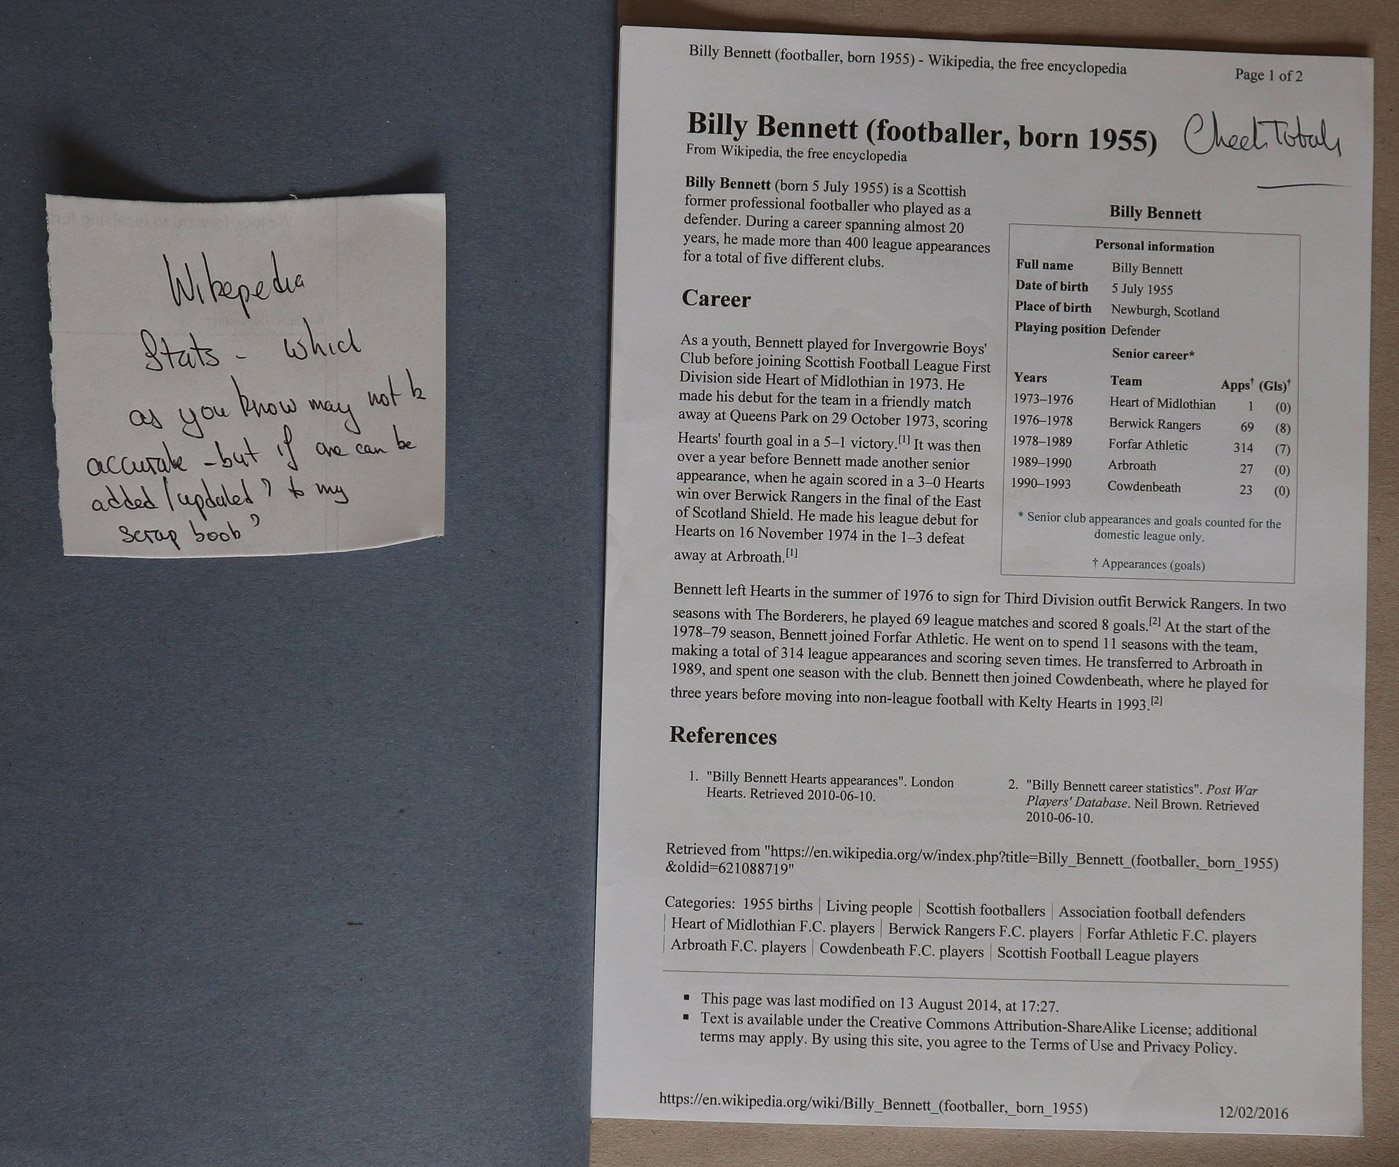 Wikepedia
Stats - which
as you know may not be
accurate - but if one can be
added/updated? to my
Scrap book?
Billy Bennett (footballer, born 1955) - Wikipedia, the free encyclopedia
Page 1 of 2
Billy Bennett (footballer, born 1955)
Check Totals
From Wikipedia, the free encyclopedia
Billy Bennett (born 5 July 1955) is a Scottish
former professional footballer who played as a
defender. During a career spanning almost 20
years, he made more than 400 league appearances
for a total of five different clubs.
Career
As a youth, Bennett played for Invergowrie Boys'
Club before joining Scottish Football League First
Division side Heart of Midlothian in 1973. He
made his debut for the team in a friendly match
away at Queens Park on 29 October 1973, scoring
Hearts' fourth goal in a 5–1 victory.[1] It was then
over a year before Bennett made another senior
appearance, when he again scored in a 3–0 Hearts
win over Berwick Rangers in the final of the East
of Scotland Shield. He made his league debut for
Hearts on 16 November 1974 in the 1–3 defeat
away at Arbroath.[1]
Billy Bennett
Personal information
Full name Billy Bennett
Date of birth 5 July 1955
Place of birth Newburgh, Scotland
Playing position Defender
Senior career*
Years Team Apps† (Gls)†
1973–1976 Heart of Midlothian 1 (0)
1976–1978 Berwick Rangers 69 (8)
1978–1989 Forfar Athletic 314 (7)
1989–1990 Arbroath 27 (0)
1990–1993 Cowdenbeath 23 (0)
* Senior club appearances and goals counted for the
domestic league only.
† Appearances (goals)
Bennett left Hearts in the summer of 1976 to sign for Third Division outfit Berwick Rangers. In two
seasons with The Borderers, he played 69 league matches and scored 8 goals.[2] At the start of the
1978–79 season, Bennett joined Forfar Athletic. He went on to spend 11 seasons with the team,
making a total of 314 league appearances and scoring seven times. He transferred to Arbroath in
1989, and spent one season with the club. Bennett then joined Cowdenbeath, where he played for
three years before moving into non-league football with Kelty Hearts in 1993.[2]
References
1. "Billy Bennett Hearts appearances". London
Hearts. Retrieved 2010-06-10.
2. "Billy Bennett career statistics". Post War
Players' Database. Neil Brown. Retrieved
2010-06-10.
Retrieved from "https://en.wikipedia.org/w/index.php?title=Billy_Bennett_(footballer,_born_1955)
&oldid=621088719"
Categories: 1955 births | Living people | Scottish footballers | Association football defenders
| Heart of Midlothian F.C. players | Berwick Rangers F.C. players | Forfar Athletic F.C. players
| Arbroath F.C. players | Cowdenbeath F.C. players | Scottish Football League players
▪ This page was last modified on 13 August 2014, at 17:27.
▪ Text is available under the Creative Commons Attribution-ShareAlike License; additional
terms may apply. By using this site, you agree to the Terms of Use and Privacy Policy.
https://en.wikipedia.org/wiki/Billy_Bennett_(footballer,_born_1955)
12/02/2016